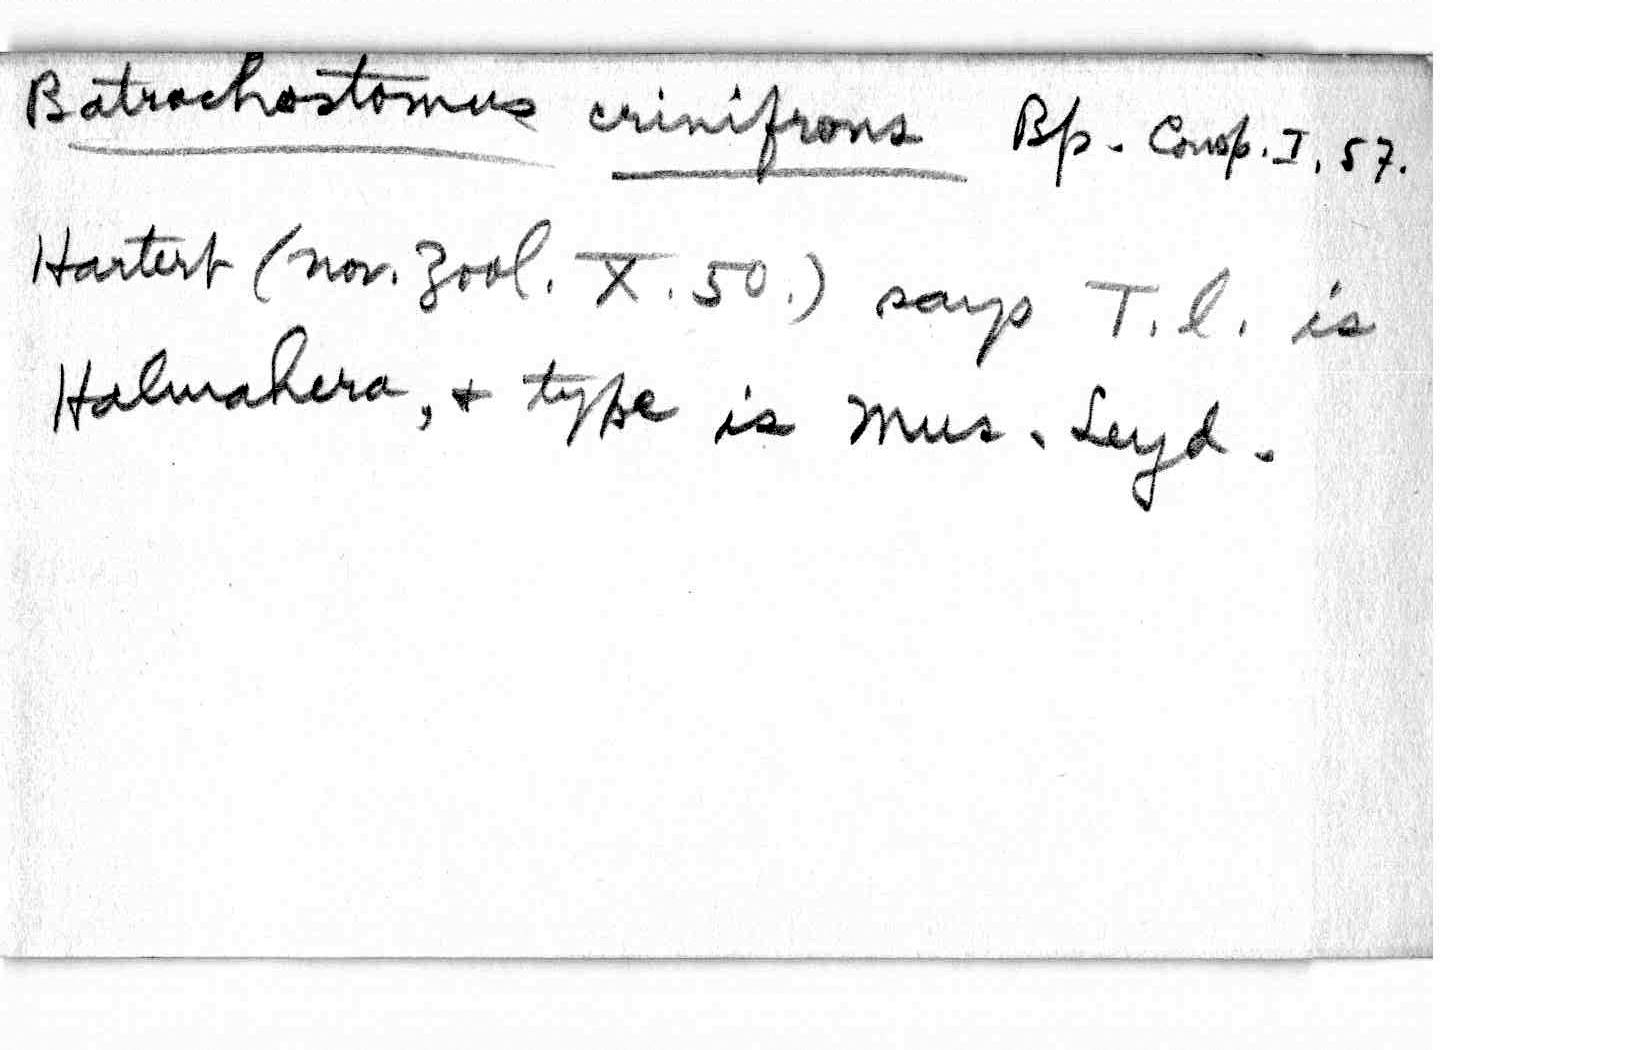 Batrachostomus crinifrons Bp. Consp. I, 57.
Hartert (Nov. Zool. X. 50.) says T. l. is
Halmahera, + type is Mus. Leyd.